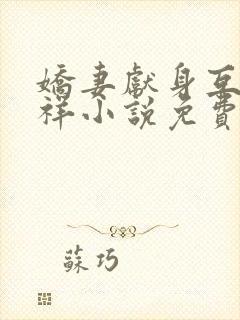 嬌妻獻身互
祥小說免費
蘇巧